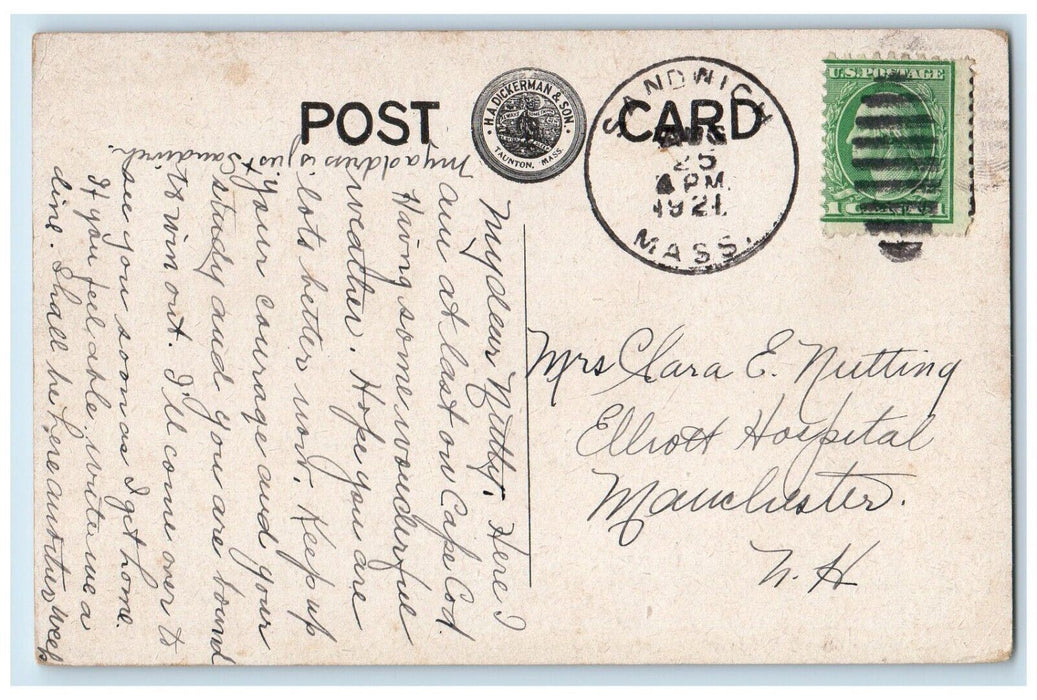 POST CARD
H.A. DICKERMAN & SON.
TAUNTON, MASS.
SANDWICH
AUG
25
4 PM.
1921.
MASS.
U.S. POSTAGE
1 1
My dear Nutty. Here I
am at last on Cape Cod.
Having some wonderful
weather. Hope you are
lots better now. Keep up
your courage and your
study and you are bound
to win out. I'll come over to
see you soon as I get home.
If you feel able, write me a
line. Shall be here another week
My address is just
Sandwich.
Mrs Clara E. Nutting
Elliott Hospital
Manchester.
N. H